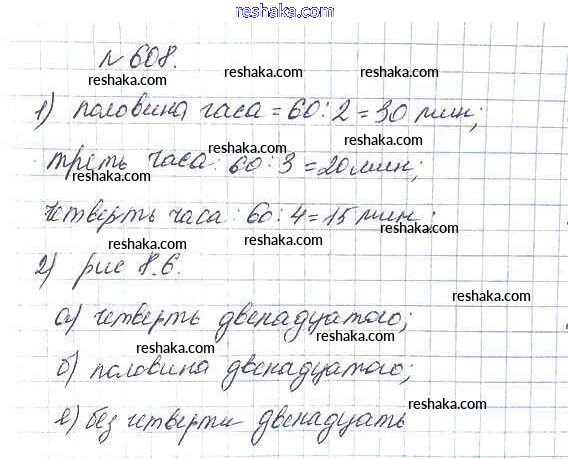 reshaka.com
№ 608.
reshaka.com
reshaka.com
1) половина часа = 60 : 2 = 30 мин;
reshaka.com
reshaka.com
треть часа: 60 : 3 = 20 мин;
reshaka.com
reshaka.com
четверть часа: 60 : 4 = 15 мин;
reshaka.com
reshaka.com
2) рис 8.6.
reshaka.com
reshaka.com
а) четверть двенадцатого;
reshaka.com
reshaka.com
б) половина двенадцатого;
reshaka.com
reshaka.com
в) без четверти двенадцать
reshaka.com